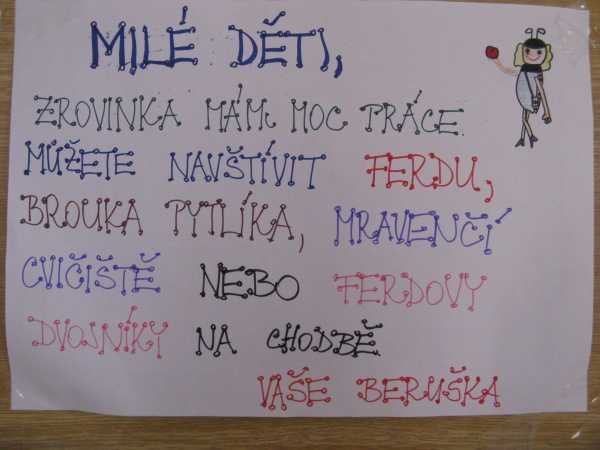 MILÉ DĚTI,
ZROVINKA MÁM MOC PRÁCE.
MŮŽETE NAVŠTÍVIT FERDU,
BROUKA PYTLÍKA, MRAVENČÍ
CVIČIŠTĚ NEBO FERDOVY
DVOJNÍKY NA CHODBĚ.
VAŠE BERUŠKA